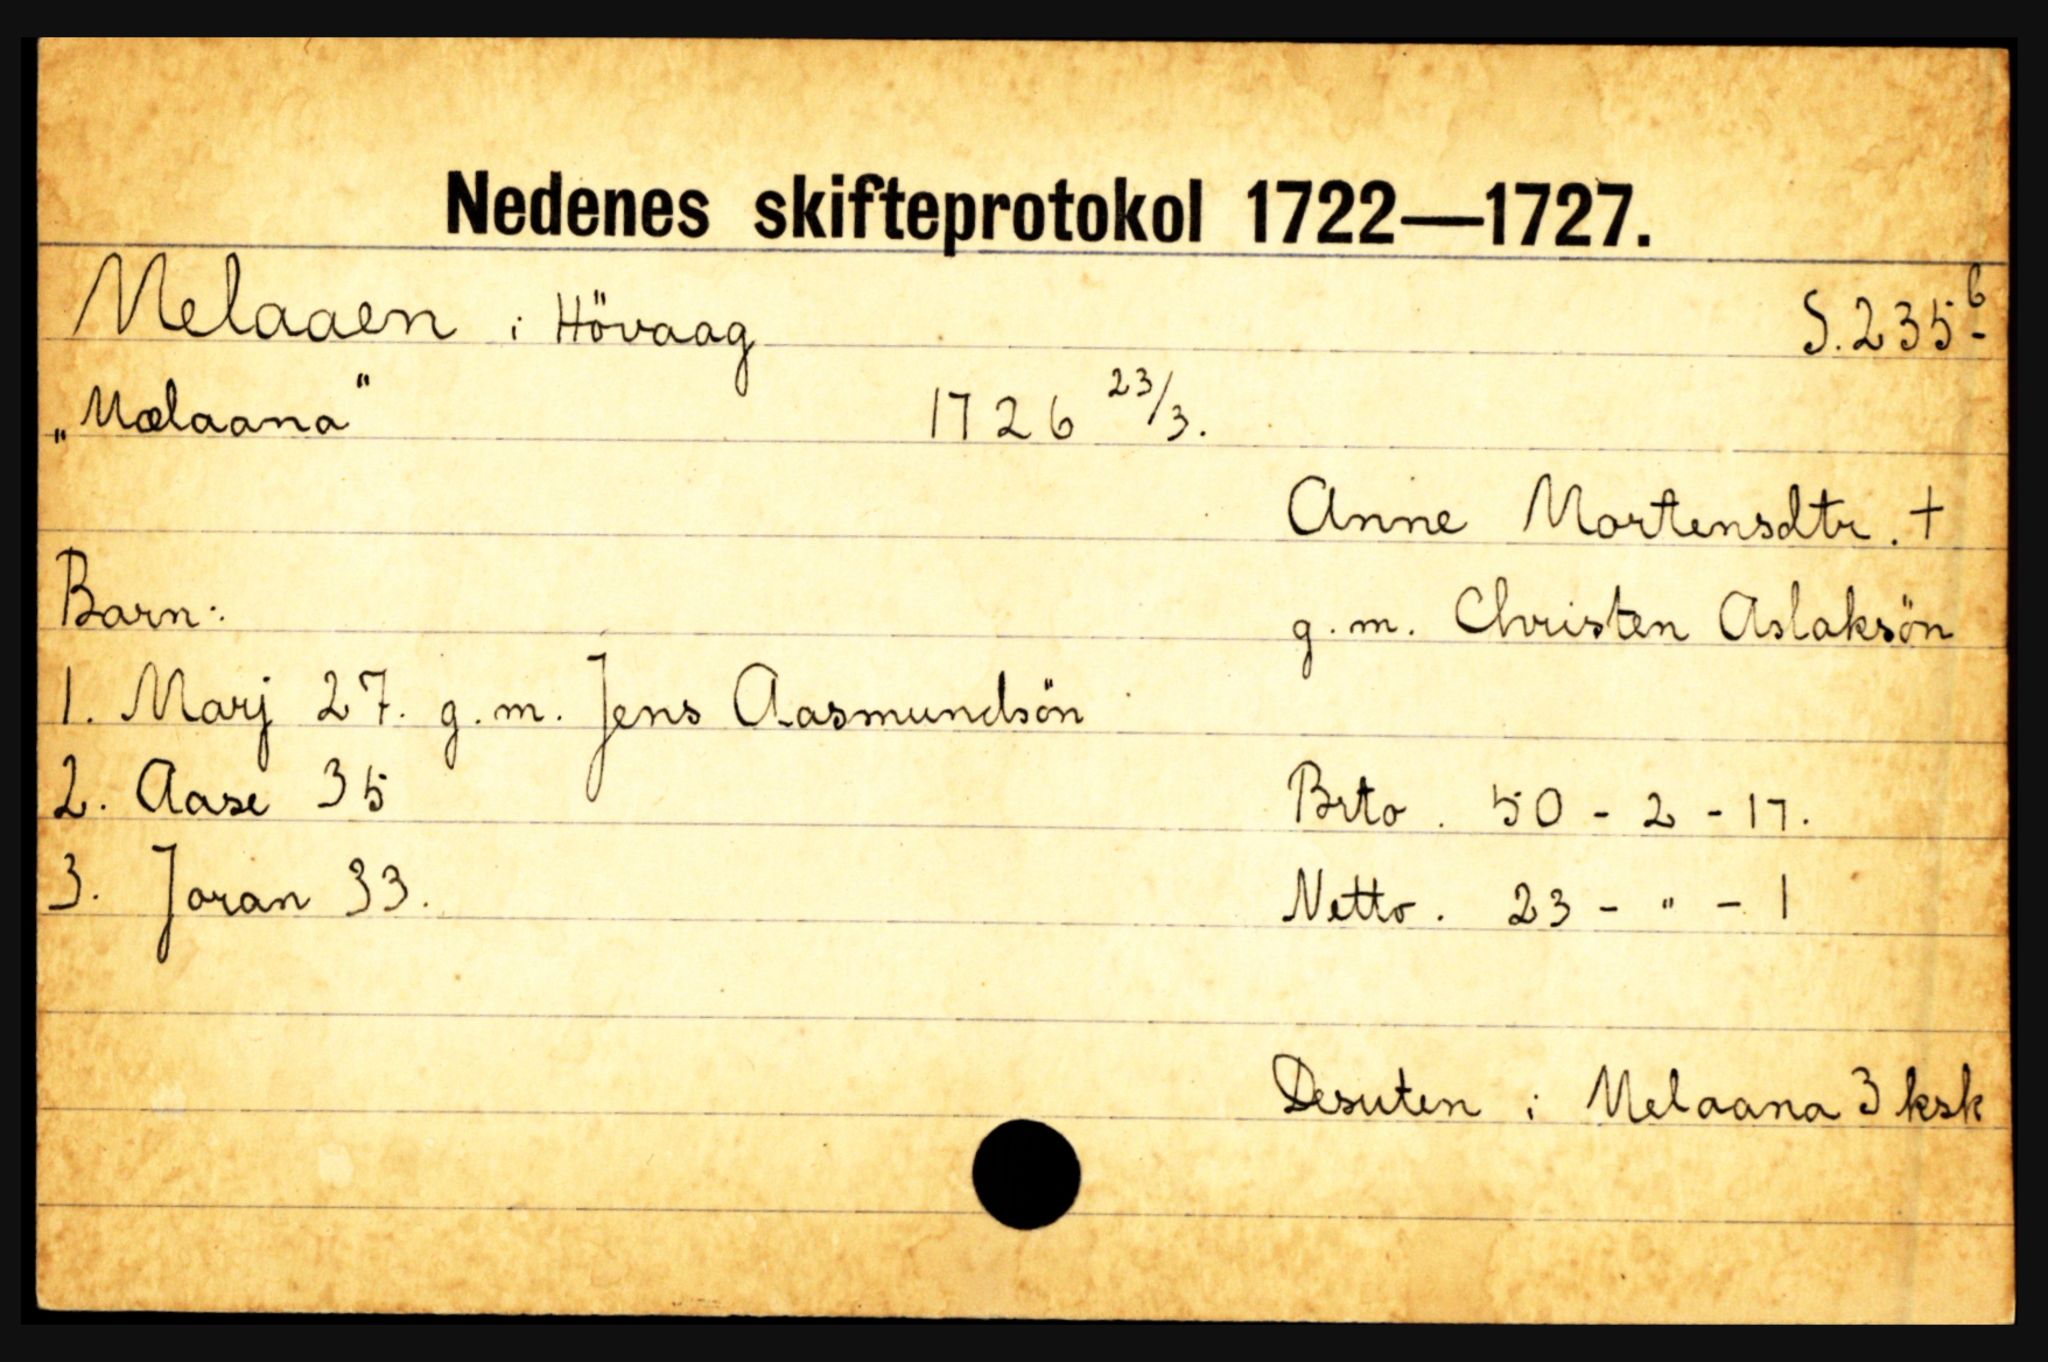 Nedenes skifteprotokol 1722—1727.
Melaaen i Hövaag S. 235b
„Mælaana" 1726 23/3.
Anne Mortensdtr. +
Barn: g. m. Christen Aslaksön
1. Marj 27. g. m. Jens Aasmundsön
2. Aase 35 Brto. 50 - 2 - 17.
3. Joran 33. Netto. 23 - " - 1
Desuten i Melaana 3 ksk